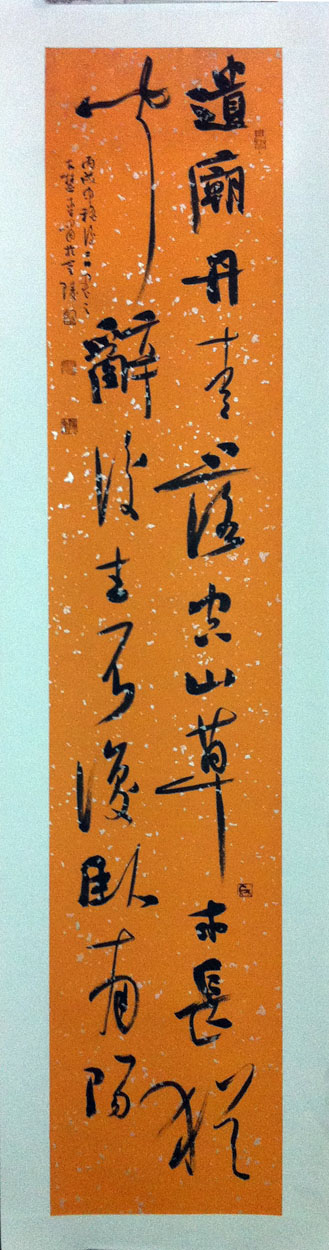 遺廟丹青落空山草木長猶
聞辭後主不復臥南陽
丙戌中秋